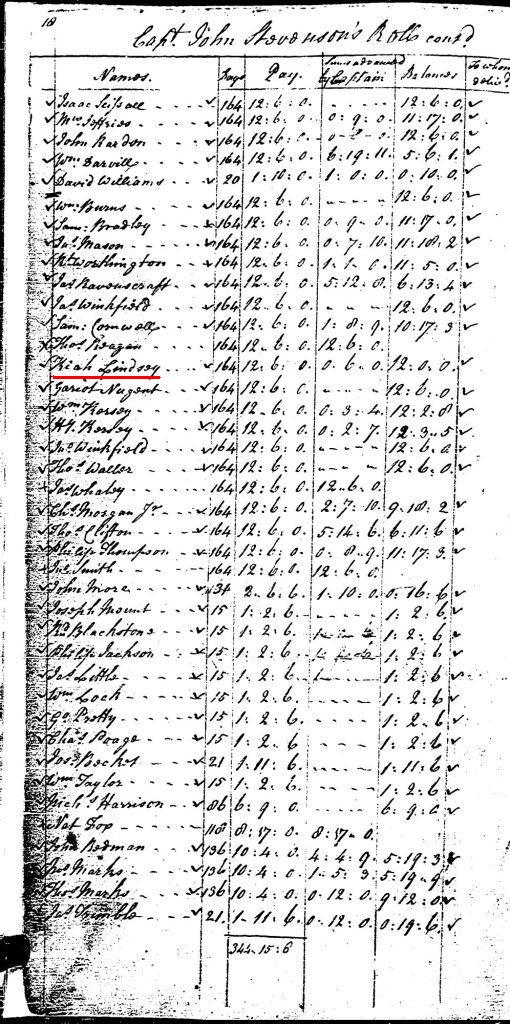 18
Capt. John Stevenson's Rolls contd.
Names. Days Pay. Sums advanced by Captain Balances To whom deliv'd.
Isaac 164 12:6:0. - - - - 12:6:0.
Jeffries 164 12:6:0. 0:9:0. 11:17:0.
John Rardon 164 12:6:0. 0-0-0. 12:6:0.
Wm. Darvill 164 12:6:0. 6:19:11. 5:6:1.
David Williams 20 1:10:0. 1:0:0. 0:10:0.
Wm. Burns 164 12:6:0. - - - - 12:6:0.
Saml. Bradley 164 12:6:0. 0:9:0. 11:17:0.
Jas. Mason 164 12:6:0. 0:7:10. 11:18:2
Rt. Worthington 164 12:6:0. 1:1:0. 11:5:0.
Jas. Ravenscraft 164 12:6:0. 5:12:8. 6:13:4
Jas. Winkfield 164 12:6:0. - - - 12:6:0.
Sam. Cornwell 164 12:6:0. 1:8:9. 10:17:3
Thos. Reagan 164 12:6:0 12:6:0.
Kiah Lindsey 164 12:6:0. 0:6:0. 12:0:0.
Nugent 164 12:6:0. - - - 12:6:0.
Wm. Kersey 164 12:6:0. 0:3:4. 12:2:8
Kersey 164 12:6:0. 0:2:7. 12:3:5
Jno. Winkfield 164 12:6:0. - - - - 12:6:0.
Thos. Waller 164 12:6:0. - - - - 12:6:0.
Jas. Whaley 164 12:6:0. 12:6:0.
Chs. Morgan Jr. 164 12:6:0. 2:7:10. 9:18:2
Thos. Clifton 164 12:6:0. 5:14:6. 6:11:6
Philip Thompson 164 12:6:0. 0:8:9. 11:17:3.
Smith 164 12:6:0. 12:6:0.
John More 34 2:6:6. 1:10:0. 0:16:6
Joseph Mount 15 1:2:6. - - - - 1:2:6.
Blackstone 15 1:2:6. 1:2:6.
Philip Jackson 15 1:2:6. 1:2:6
Jas. Little 15 1:2:6. - - - 1:2:6
Wm. Lock 15 1:2:6. - - - - 1:2:6.
Go. Pretty 15 1:2:6. - - - - 1:2:6.
Chas. Poage 15 1:2:6 1:2:6
Jos. Becket 21 1:11:6. - - - - 1:11:6
Wm. Taylor 15 1:2:6. - - - - 1:2:6.
Harrison 86 6:9:0. - - - - 6:9:0
Nat. Fop 118 8:17:0. 8:17:0.
John Redman 136 10:4:0. 4:4:9. 5:19:3.
Marks 136 10:4:0. 1:5:3
Thos. Marks 136 10:4:0. 0:12:0. 9:12:0.
Jas. Trimble 21 1:11:6. 0:12:0. 0:19:6.
344:15:6